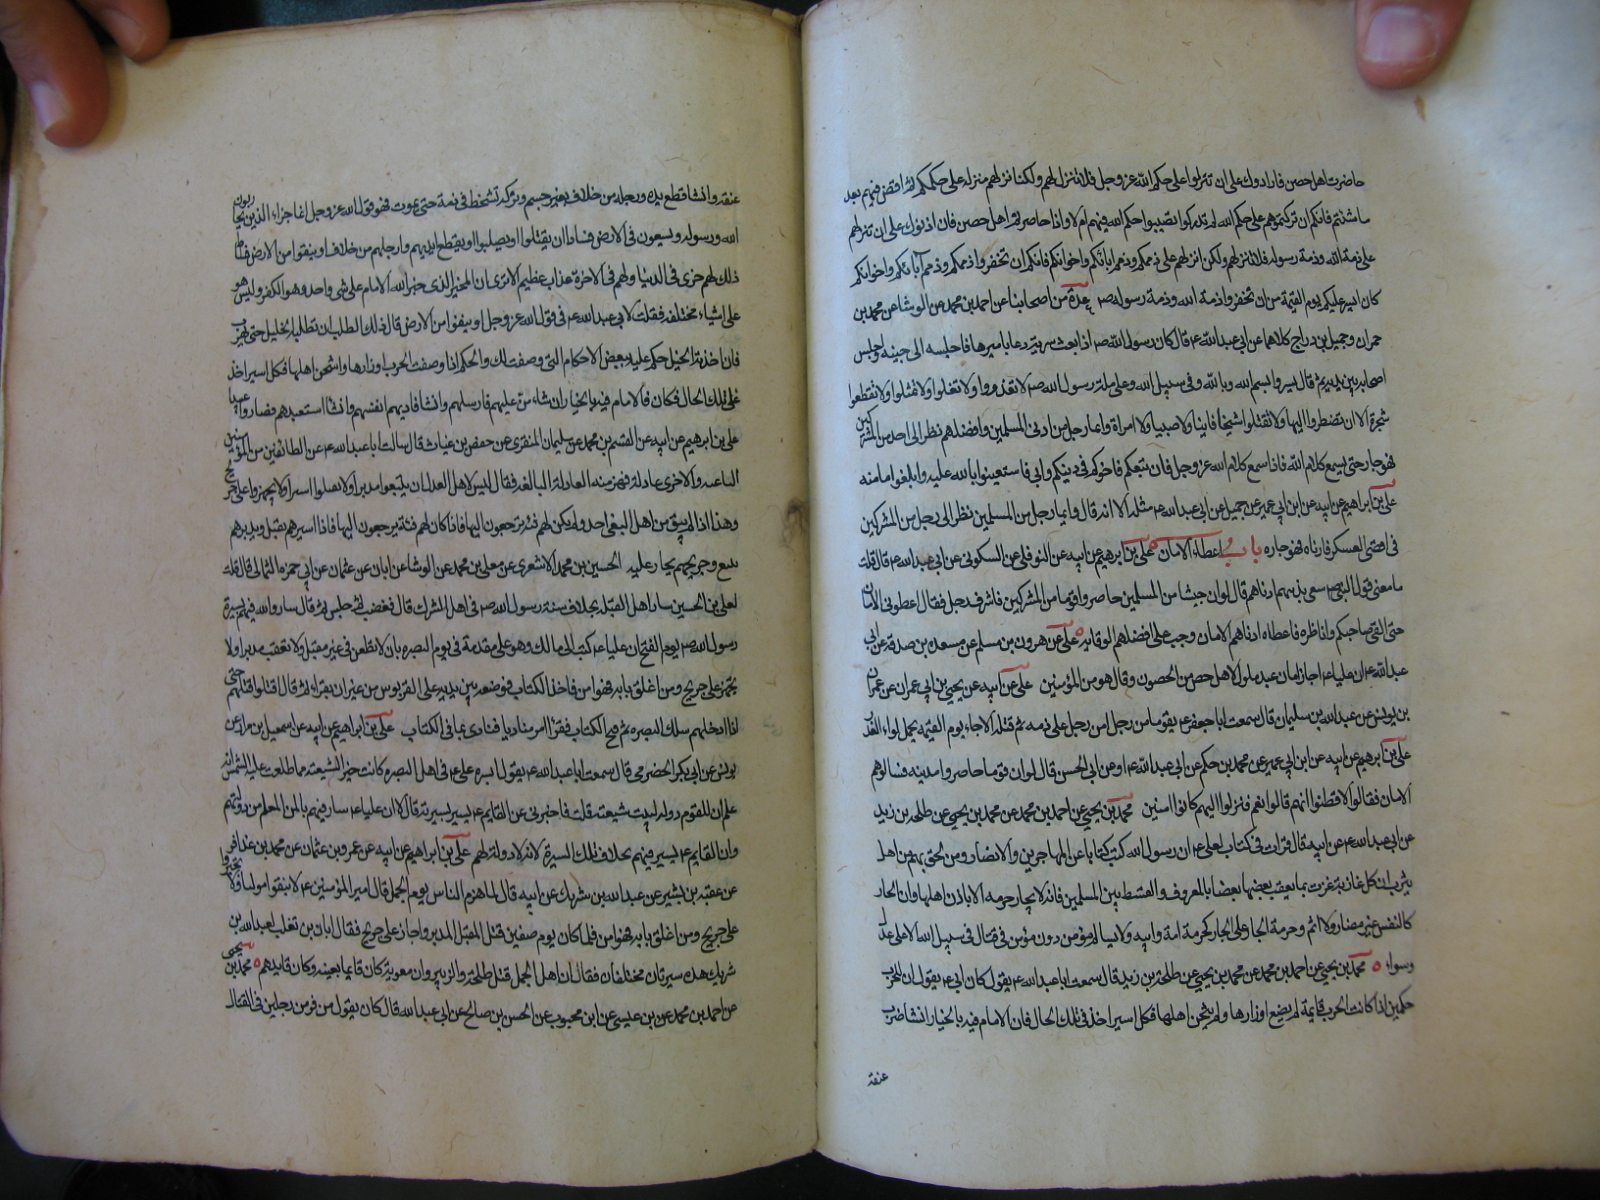 حاضرت اهل حصن فارادوك على ان تنزلوا على حكم الله عز وجل فلا تنزل لهم ولكن انزلهم على حكمكم ثم اقض فيهم بعد
ما شئتم فانكم ان تركتموهم على حكم الله لم تدركوا تصيبوا حكم الله فيهم ام لا واذا حاصرتم اهل حصن فان اذنوك على ان تنزلهم
على ذمة الله وذمة رسوله فلا تنزلهم ولكن انزلهم على ذممكم وذمم ابائكم واخوانكم فانكم ان تخفروا ذممكم وذمم آبائكم واخوانكم
كان ايسر عليكم يوم القيمة من ان تخفروا ذمة الله وذمة رسوله ص عدة من اصحابنا عن احمد بن محمد عن الوشا عن محمد بن
حمران وجميل بن دراج كلاهما عن ابى عبد الله ع قال كان رسول الله ص اذا بعث سرية دعا باميرها فاجلسه الى جنبه واجلس
اصحابه بين يديه ثم قال سيروا بسم الله وبالله وفى سبيل الله وعلى ملة رسول الله ص لا تغدروا ولا تغلوا ولا تمثلوا ولا تقطعوا
شجرة الا ان تضطروا اليها ولا تقتلوا شيخا فانيا ولا صبيا ولا امراة وايما رجل من ادنى المسلمين وافضلهم نظر الى احد من المشركين
فهو جار حتى يسمع كلام الله فاذا سمع كلام الله عز وجل فان تبعكم فاخوكم فى دينكم وابى فاستعينوا بالله عليه وابلغوا مامنه
على بن ابراهيم عن ابيه عن ابن ابى عمير عن جميل عن ابى عبد الله ع مثله الا انه قال وايما رجل من المسلمين نظر الى رجل من المشركين
فى اقصى العسكر فادناه فهو جاره باب اعطاء الامان على بن ابرهيم عن ابيه عن النوفلى عن السكونى عن ابى عبد الله ع قال قلت
ما معنى قول النبى ص يسعى بذمتهم ادناهم قال لو ان جيشا من المسلمين حاصروا قوما من المشركين فاشرف رجل فقال اعطونى الامان
حتى القى صاحبكم واناظره فاعطاه ادناهم الامان وجب على افضلهم الوفا به على عن هرون بن مسلم عن مسعدة بن صدقة عن ابى
عبد الله ع ان عليا ع اجاز امان عبد مملوك لاهل حصن من الحصون وقال هو من المؤمنين على عن ابيه عن يحيى بن ابى عمران عن
يونس عن عبد الله بن سليمان قال سمعت ابا جعفر ع يقول ما من رجل امن رجلا على ذمه ثم قتله الا جاء يوم القيمه يحمل لواء الغدر
على بن ابرهيم عن ابيه عن ابن ابى عمير عن محمد بن حكم عن ابى عبد الله ع او عن ابى الحسن قال لو ان قوما حاصروا مدينه فسالوهم
الامان فقالوا لا فظنوا انهم قالوا نعم فنزلوا اليهم كانوا امنين محمد بن يحيى عن احمد بن محمد عن محمد بن يحيى عن طلحة بن زيد
عن ابى عبد الله ع عن ابيه قال قرات فى كتاب لعلى ع ان رسول الله كتب كتابا عن المهاجرين والانصار ومن لحق بهم من اهل
يثرب ان كل غازية غزت بما يعقب بعضها بعضا بالمعروف والقسط بين المسلمين فانه لا يجار حرمه الا باذن اهلها وان الجار
كالنفس غير مضار ولا اثم وحرمة الجار على الجار كحرمة امه وابيه ولا يسالم مؤمن دون مؤمن فى قتال فى سبيل الله الا على عدل
وسواء محمد بن يحيى عن احمد بن محمد عن محمد بن يحيى عن طلحة بن زيد قال سمعت ابا عبد الله ع يقول كان ابى ع يقول ان للحرب
حكمين اذا كانت الحرب قايمة لم يضع اوزارها ولم يثخن اهلها فكل اسير اخذ فى تلك الحال فان الامام فيه بالخيار ان شا ضرب
عنقه
عنقه وان شا قطع يده ورجله من خلاف بغير حسم وتركه تشحط فى دمه حتى يموت فهو قول الله عز وجل انما جزاء الذين يحاربون
الله ورسوله ويسعون فى الارض فسادا ان يقتلوا او يصلبوا او يقطع ايديهم وارجلهم من خلاف او ينفوا من الارض
ذلك لهم خزى فى الدنيا ولهم فى الاخرة عذاب عظيم الا ترى ان المخير الذى خير الله الامام على شى واحد وهو الكفر وليس هو
على اشياء مختلفه فقلت لابى عبد الله ع فى قول الله عز وجل او ينفوا من الارض قال ذلك الطلب ان تطلبه الخيل حتى يهرب
فان اخذته الخيل حكم عليه ببعض الاحكام التى وصفت لك والحكم اذا وضعت الحرب اوزارها واثخن اهلها فكل اسير اخذ
على تلك الحال فكان فالامام فيه بالخيار ان شاء من عليهم فارسلهم وان شا فاداهم انفسهم وان شا استعبدهم فصاروا عبيدا
على بن ابرهيم عن ابيه عن القسم بن محمد عن سليمان المنقرى عن حفص بن غياث قال سالت ابا عبد الله ع عن الطائفتين من المؤمنين
والاخرى عادلة فهزمت العادلة البالغه فقال ليس لاهل العدل ان يتبعوا مدبرا ولا يقتلوا اسيرا ولا يجهزوا على جريح
وهذا اذا لم يبق من اهل البغى احد ولم يكن لهم فئة يرجعون اليها فاذا كان لهم فئة يرجعون اليها فاذا اسيرهم يقتل ومدبرهم
يتبع وجريحهم يجار عليه الحسين بن محمد الاشعرى عن معلى بن محمد عن الوشا عن ابان بن عثمان عن ابى حمزه الثمالى قال قلت
لعلى بن الحسين سار اهل القبله بخلاف سنة رسول الله ص فى اهل الشرك قال فغضب ثم جلس ثم قال سار والله فيهم بسيرة
رسول الله ص يوم الفتح ان عليا ع كتب الى مالك وهو على مقدمته فى يوم البصره بان لا يطعن فى غير مقبل ولا يقتل مدبرا ولا
يجهز على جريح ومن اغلق بابه فهو امن فاخذ الكتاب فوضعه بين يديه على القربوس من غير ان يقراه ثم قال اقتلوا فقتلهم حتى
اذا ادخلهم سكك البصره ثم فتح الكتاب فقرأ ثم امر مناديا فنادى بما فى الكتاب على بن ابراهيم عن ابيه عن اسمعيل بن مرار عن
يونس عن ابى بكر الحضرمى قال سمعت ابا عبد الله ع يقول لسيرة على ع فى اهل البصره كانت خير الشيعته مما طلعت عليه الشمس انه
علم ان للقوم دولة فلو سباهم لسبيت شيعته قلت فاخبرنى عن القايم ع يسير بسيرته قال لا ان عليا ع سار فيهم بالمن للعلم من دولتهم
وان القايم ع يسير فيهم بخلاف تلك السيرة لانه لا دولة لهم على بن ابراهيم عن ابيه عن عمرو بن عثمان عن محمد بن عذافر
عن عقبه بن بشير عن عبد الله بن شريك عن ابيه قال لما هزم الناس يوم الجمل قال امير المؤمنين ع لا تتبعوا موليا ولا تجيزوا
على جريح ومن اغلق بابه فهو امن فلما كان يوم صفين قتل المقبل المدبر واجاز على جريح فقال ابان بن تغلب لعبد الله بن
شريك هذه سيرتان مختلفتان فقال ان اهل الجمل قتل طلحة والزبير وان معوية كان قايما بعينه وكان قايدهم محمد بن يحيى
عن احمد بن محمد عن بن عيسى عن ابن محبوب عن الحسن بن صالح عن ابى عبد الله قال كان يقول من فر من رجلين فى القتال